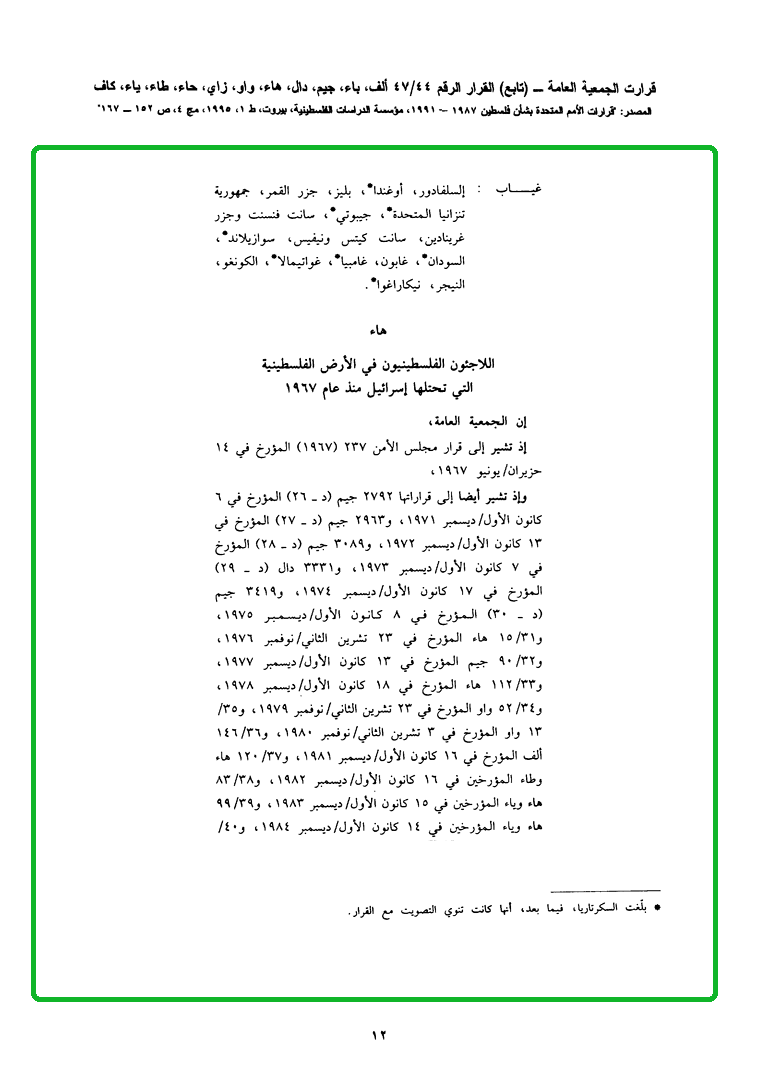 قرارت الجمعية العامة ــ (تابع) القرار الرقم ٤٧/٤٤ ألف، باء، جيم، دال، هاء، واو، زاي، حاء، طاء، ياء، كاف
المصدر: "قرارات الأمم المتحدة بشأن فلسطين ١٩٨٧ – ١٩٩١، مؤسسة الدراسات الفلسطينية، بيروت، ط ١، ١٩٩٥، مج ٤، ص ١٥٢ ــ ١٦٧"
غيـــاب : إلسلفادور، أوغندا*، بليز، جزر القمر، جمهورية
تنزانيا المتحدة*، جيبوتي*، سانت فنسنت وجزر
غرينادين، سانت كيتس ونيفيس، سوازيلاند*،
السودان*، غابون، غامبيا*، غواتيمالا*، الكونغو،
النيجر، نيكاراغوا*.
هاء
اللاجئون الفلسطينيون في الأرض الفلسطينية
التي تحتلها إسرائيل منذ عام ١٩٦٧
إن الجمعية العامة،
إذ تشير إلى قرار مجلس الأمن ٢٣٧ (١٩٦٧) المؤرخ في ١٤
حزيران/يونيو ١٩٦٧،
وإذ تشير أيضا إلى قراراتها ٢٧٩٢ جيم (د ـ ٢٦) المؤرخ في ٦
كانون الأول/ديسمبر ١٩٧١، و٢٩٦٣ جيم (د ـ ٢٧) المؤرخ في
١٣ كانون الأول/ديسمبر ١٩٧٢، و٣٠٨٩ جيم (د ـ ٢٨) المؤرخ
في ٧ كانون الأول/ديسمبر ١٩٧٣، و٣٣٣١ دال (د ـ ٢٩)
المؤرخ في ١٧ كانون الأول/ديسمبر ١٩٧٤، و٣٤١٩ جيم
(د ـ ٣٠) المؤرخ في ٨ كانون الأول/ديسمبر ١٩٧٥،
و١٥/٣١ هاء المؤرخ في ٢٣ تشرين الثاني/نوفمبر ١٩٧٦،
و٩٠/٣٢ جيم المؤرخ في ١٣ كانون الأول/ديسمبر ١٩٧٧،
و١١٢/٣٣ هاء المؤرخ في ١٨ كانون الأول/ديسمبر ١٩٧٨،
و٥٢/٣٤ واو المؤرخ في ٢٣ تشرين الثاني/نوفمبر ١٩٧٩، و٣٥/
١٣ واو المؤرخ في ٣ تشرين الثاني/نوفمبر ١٩٨٠، و١٤٦/٣٦
ألف المؤرخ في ١٦ كانون الأول/ديسمبر ١٩٨١، و١٢٠/٣٧ هاء
وطاء المؤرخين في ١٦ كانون الأول/ديسمبر ١٩٨٢، و٨٣/٣٨
هاء وياء المؤرخين في ١٥ كانون الأول/ديسمبر ١٩٨٣، و٩٩/٣٩
هاء وياء المؤرخين في ١٤ كانون الأول/ديسمبر ١٩٨٤، و٤٠/
* بلّغت السكرتاريا، فيما بعد، أنها كانت تنوي التصويت مع القرار.
١٢